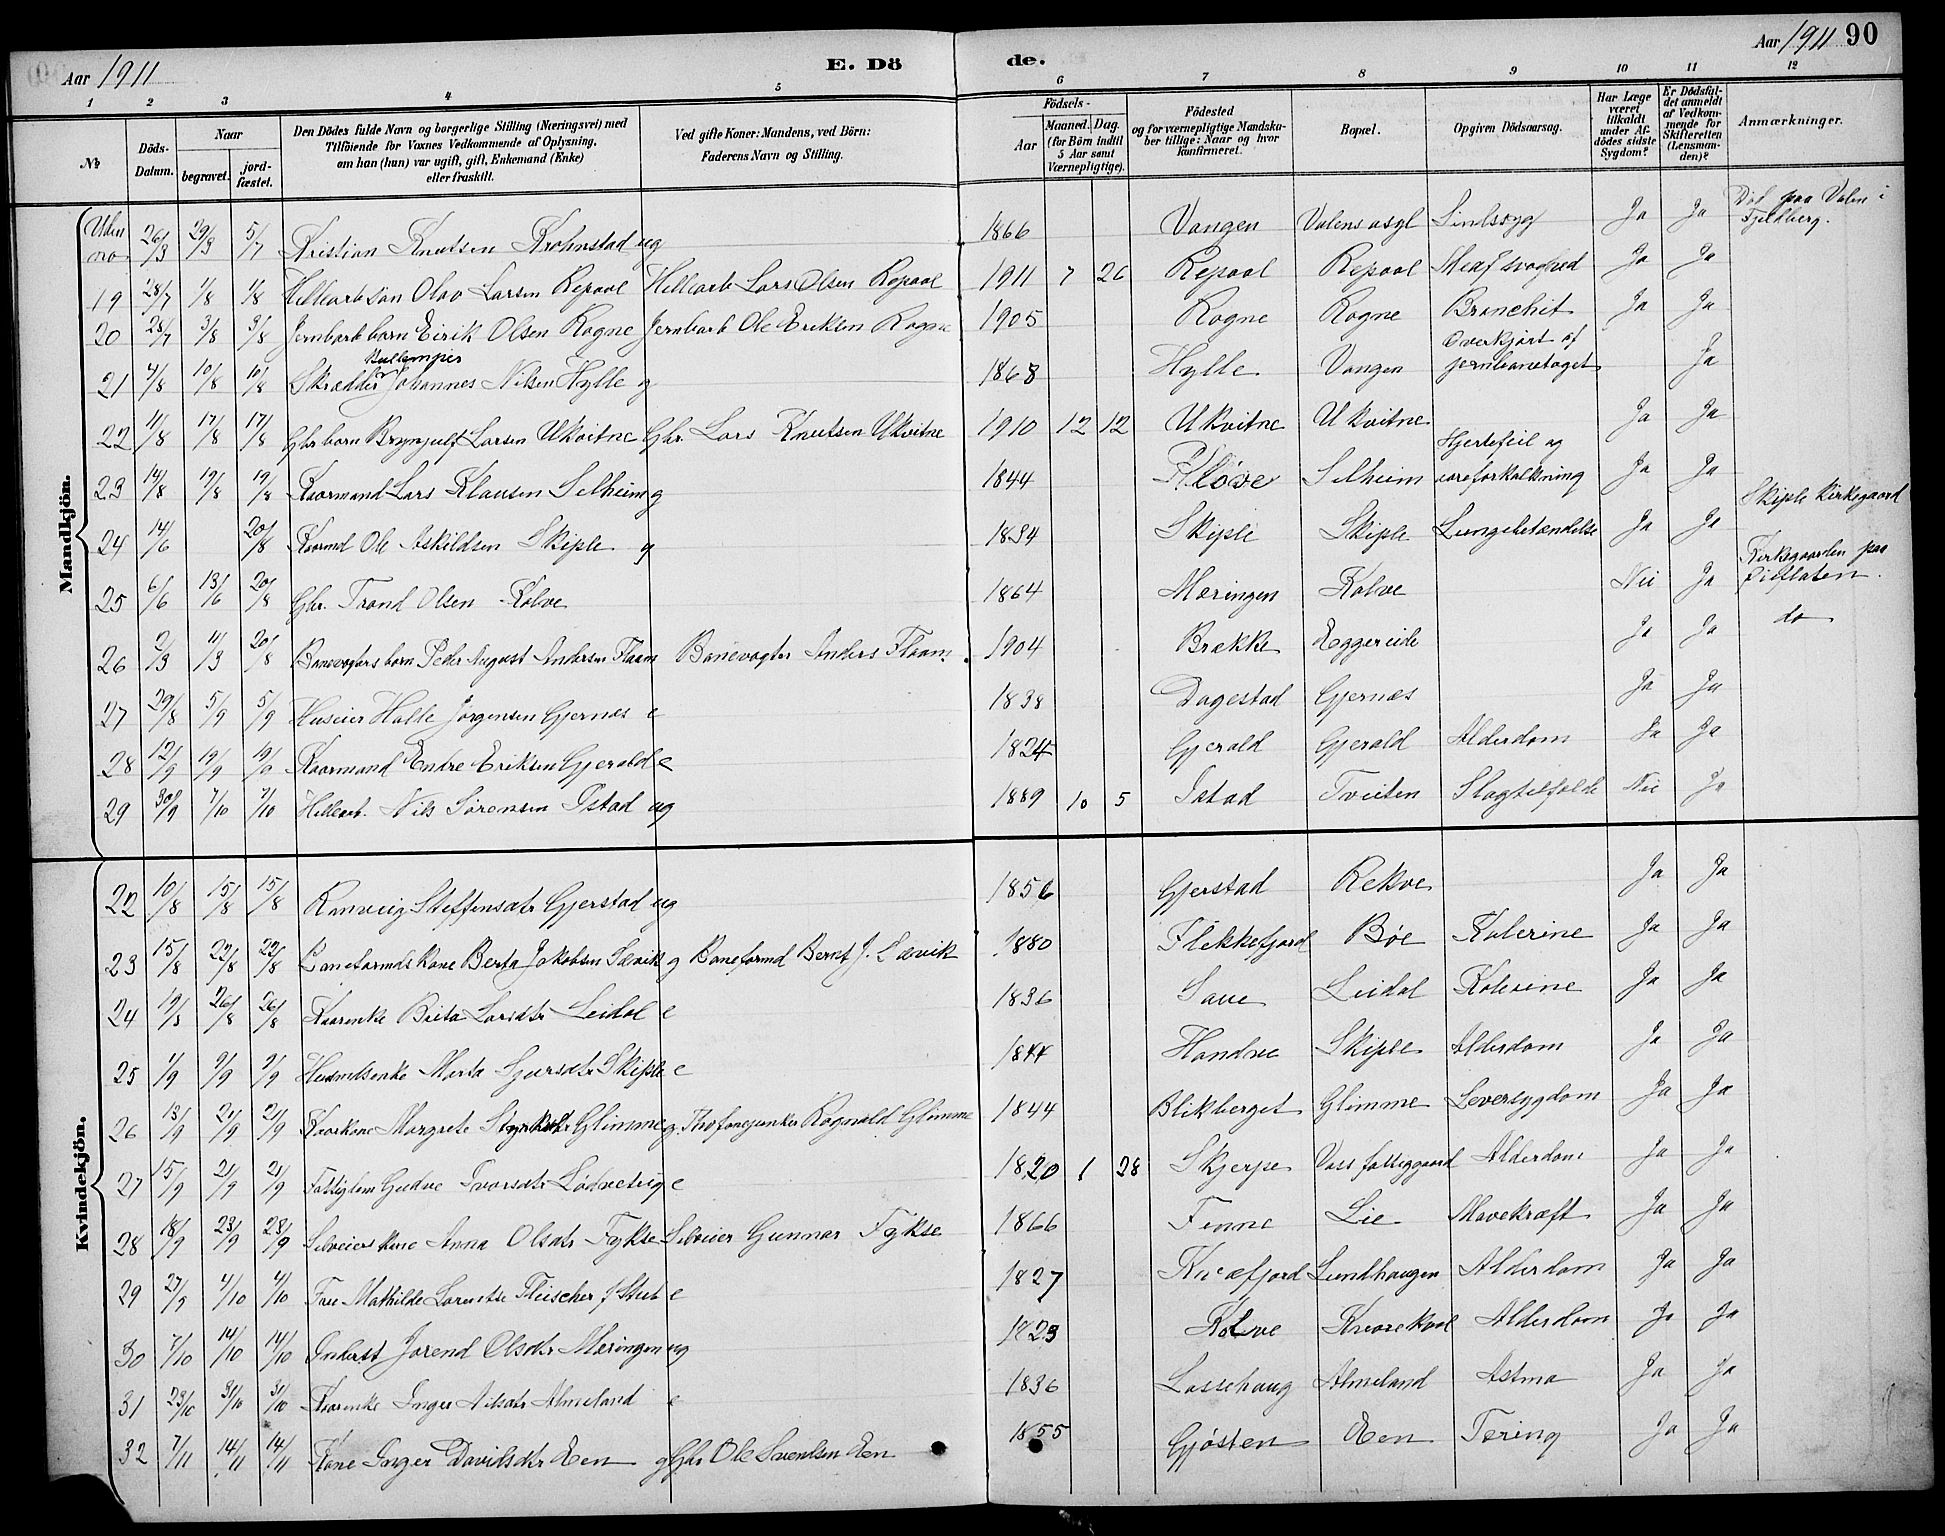 Aar 1911 E. Dö de. Aar 1911 90
1 2 3 4 5 6 7 8 9 10 11 12
№ Döds-Datum. Naar begravet. jord-fæstet. Den Dödes fulde Navn og borgerlige Stilling (Næringsvei) med Tilföiende for Voxnes Vedkommende af Oplysning, om han (hun) var ugift, gift, Enkemand (Enke) eller fraskilt. Ved gifte Koner: Mandens, ved Börn: Faderens Navn og Stilling. Födsels- Aar Maaned. Dag. (for Börn indtil 5 Aar samt Værnepligtige). Födested og for værnepligtige Mandskaber tillige: Naar og hvor konfirmeret. Bopæl. Opgiven Dödsaarsag. Har Læge været tilkaldt under Afdödes sidste Sygdom? Er Dödsfaldet anmeldt af Vedkommende for Skifteretten (Lensmanden)? Anmærkninger.
Mandkjön.
Uden no 26/3 29/3 5/7 Kristian Knutsen Krohnstad ug 1866 Vangen Valens asyl Sindssyg Ja Ja Död paa Valen i Fjeldberg.
19 28/7 1/8 1/8 Olav Larsen Repaal Lars Olsen Repaal 1911 7 26 Repaal Repaal Ja Ja
20 28/7 3/8 3/8 Jernbarb barn Eirik Olsen Rogne Jernbarb Ole Eriksen Rogne 1905 Rogne Rogne Bronchit Ja Ja
21 4/8 10/8 10/8 Skrædder Johannes Nilsen Hylle g 1868 Hylle Vangen Overkjört af jernbanetoget Ja
22 11/8 17/8 17/8 Gbr barn Brynjulf Larsen Ukvitne Gbr. Lars Knutsen Ukvitne 1910 12 12 Ukvitne Ukvitne Ja Ja
23 14/8 19/8 19/8 Kaarmand Lars Klausen Selheim g 1844 Fløve Selheim Hjertefeil og aareforkalkning Ja Ja
24 14/6 20/8 Kaarmd Ole Askildsen Skiple g 1834 Skiple Skiple Lungebetændelse Ja Ja Skiple Kirkegaard
25 6/6 13/6 20/8 Gbr. Trond Olsen Kolve 1864 Mæringen Kolve Nei Ja Kirkegaarden paa Øieflaten.
26 2/3 4/3 20/8 Banevogters barn Peder August Andersen Flaam Banevogter Anders Flaam. 1904 Brække Eggereide Ja Ja do
27 29/8 5/9 5/9 Huseier Halle Jørgensen Gjernes e 1838 Dagestad Gjernæs Ja Ja
28 12/9 19/9 19/9 Kaarmand Endre Eriksen Gjerald e 1824 Gjerald Gjerald Alderdom Ja Ja
29 30/9 7/10 7/10 Nils Sørensen Istad ug 1889 10 5 Istad Tveiten Slagtilfælde Nei Ja
Kvindekjön.
22 10/8 15/8 15/8 Ranveig Steffensdtr Gjerstad ug 1856 Gjerstad Rekve Ja Ja
23 15/8 22/8 22/8 Baneformdskone Berta Jakobsen Sævik g Baneformd Bernt J. Sævik 1880 Flekkefjord Bøe Kolerine Ja Ja
24 19/8 26/8 26/8 Kaarenke Brita Larsdtr Leidal e 1836 Saue Leidal Kolerine Ja Ja
25 1/9 9/9 9/9 Husmdsenke Marta Sjursdtr Skiple e 1844 Handve Skiple Alderdom Ja Ja
26 13/9 21/9 21/9 Kaarkone Margrete Styrksdtr Glimme g. Rognald Glimme 1844 Blikberget Glimme Leversygdom Ja Ja
27 15/9 21/9 21/9 Fattiglem Gudve Ivarsdtr Lødvetvig e 1820 1 28 Skjerpe Voss fattiggaard Alderdom Ja Ja
28 18/9 23/9 23/9 Selveiers kone Anna Olsdtr Fykse Selveier Gunnar Fykse 1866 Finne Lie Mavekræft Ja Ja
29 27/9 4/10 4/10 Fru Mathilde Lorentse Fleischer f Stub e 1827 Kvæfjord Lundhaugen Alderdom Ja Ja
30 7/10 14/10 14/10 Inderst Jorend Olsdtr Mæringen ug 1823 Kolve Kvarekvol Alderdom Ja Ja
31 23/10 31/10 31/10 Kaarenke Inger Nilsdtr Almeland e 1836 Lassehaug Almeland Astma Ja Ja
32 7/11 14/11 14/11 Kone Inger Davidsdtr Een g Gbr Ole Svendsen Een 1855 Gjøsten Een Tæring Ja Ja